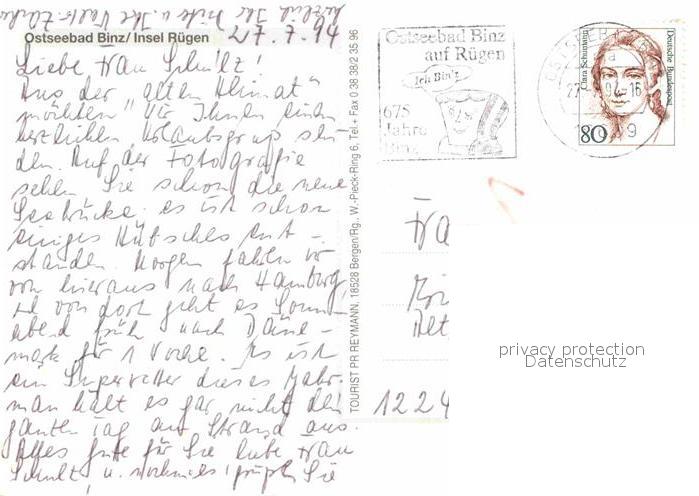 herzlich Ihr
Ostseebad Binz/Insel Rügen 27.7.94
Liebe Frau Schulz!
Aus der "alten Heimat"
möchten wir Ihnen einen
herzlichen Urlaubsgruß sen-
den. Auf der Fotografie
sehen Sie schon die neue
Seebrücke. es ist schon
einiges Hübsches ent-
standen. Morgen fahren wir
von hieraus nach Hamburg
und von dort geht es Sonn-
abend früh nach Däne-
mark für 1 Woche. Es ist
ein Superwetter dieses Jahr.
man hält es gar nicht den
ganzen Tag am Strand aus.
Alles Gute für Sie liebe Frau
Schulz, u. nochmals grüßen Sie
TOURIST PR REYMANN, 18528 Bergen/Rg., W.-Pieck-Ring 6, Tel.+ Fax 0 38 38/2 35 96
Ostseebad Binz
auf Rügen
Ich Bin'z
675
Jahre
Binz
27. 94-16
Clara Schumann
Deutsche Bundespost
80
Fra
1224
privacy protection
Datenschutz